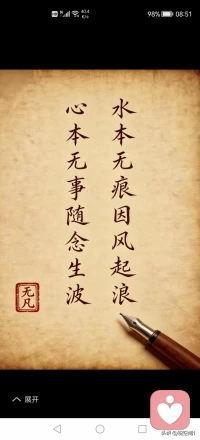 40.4
K/s
98%
08:51
水本无痕因风起浪
心本无事随念生波
无凡
展开